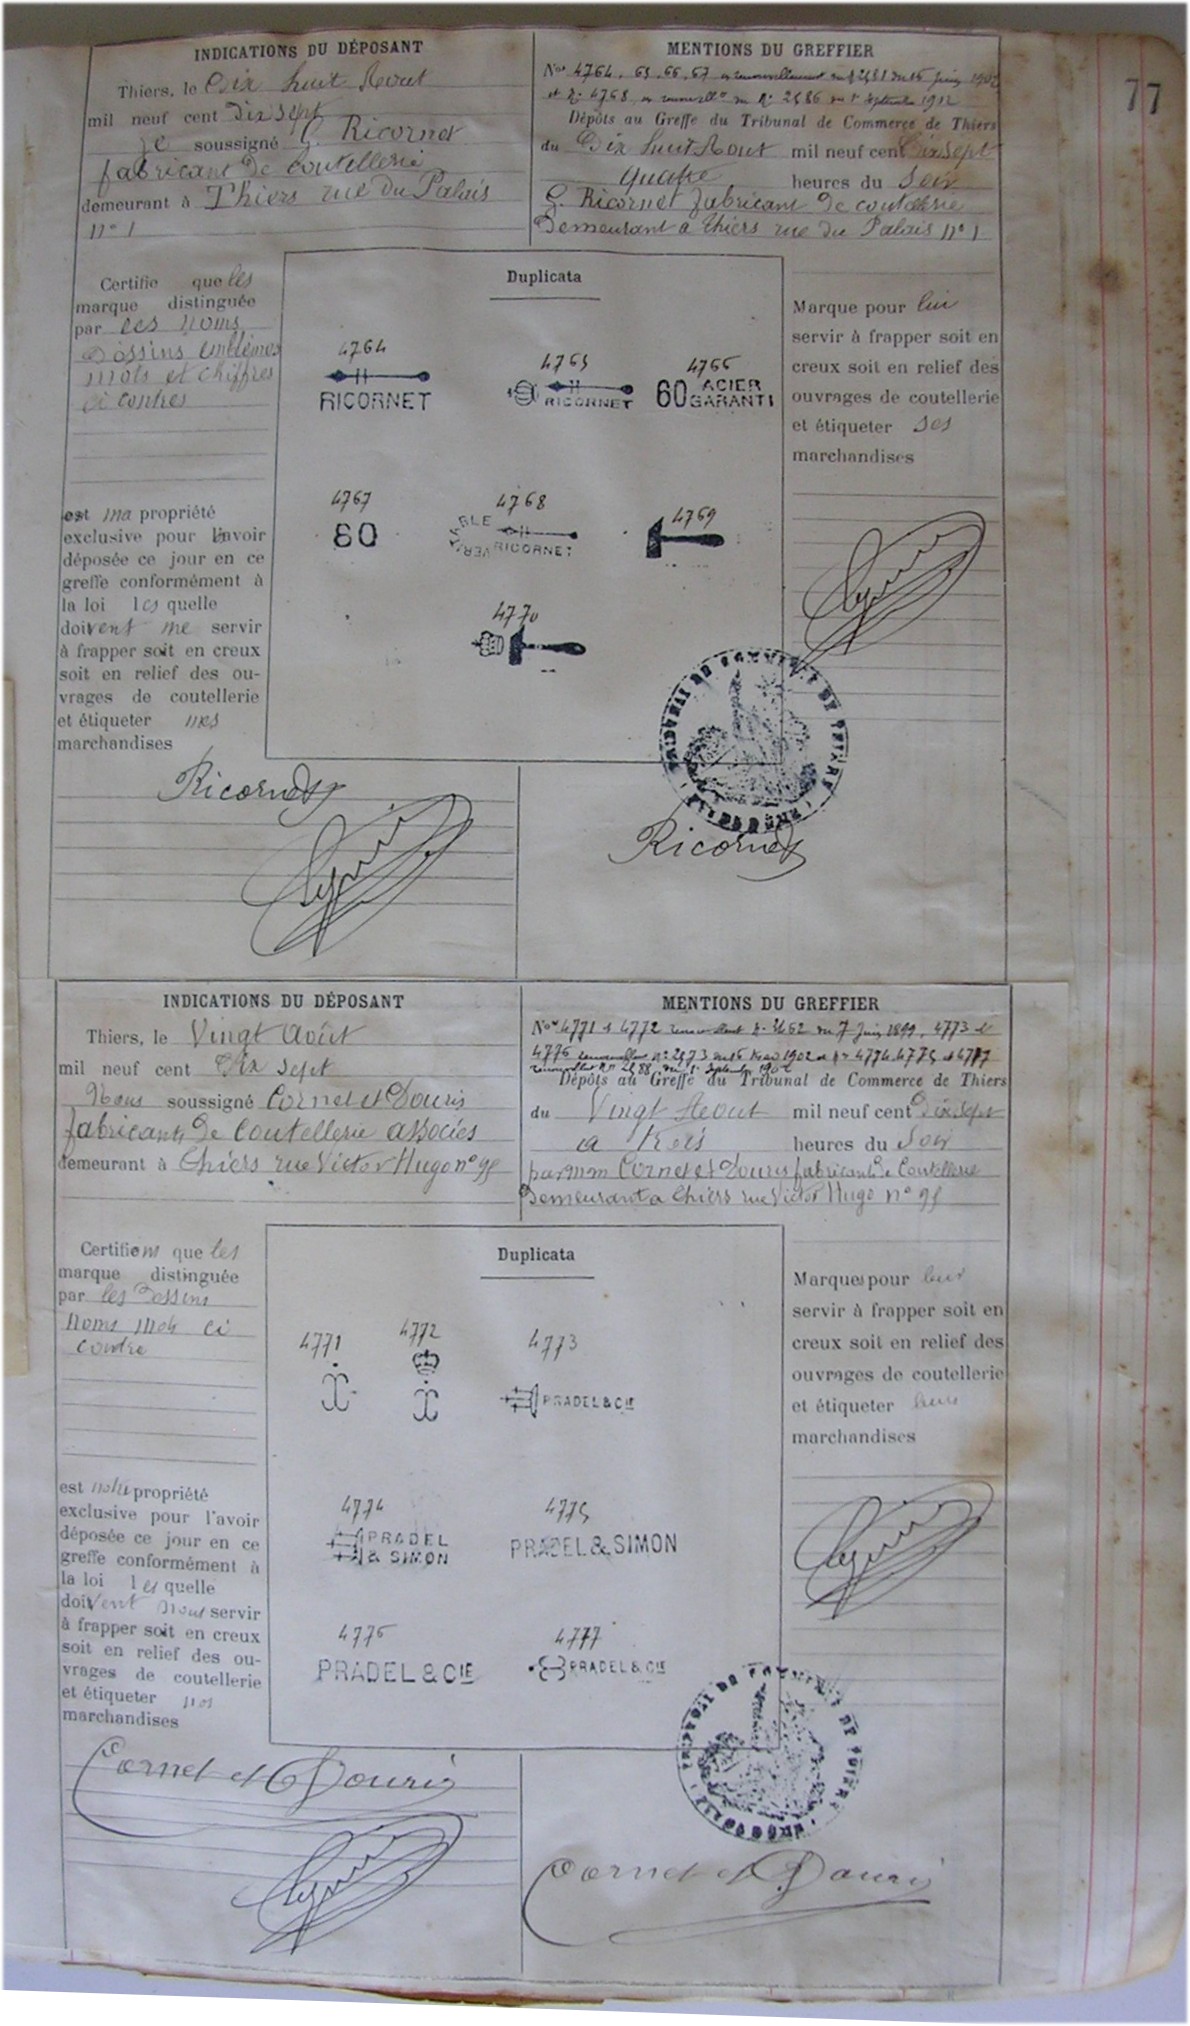 77
INDICATIONS DU DÉPOSANT
Thiers, le Dix huit Aout
mil neuf cent Dix sept
je soussigné G. Ricornet
fabricant de coutellerie
demeurant à Thiers rue du Palais
n° 1
MENTIONS DU GREFFIER
Nos 4764, 65, 66, 67 en renouvellement du 16 juin 1902
et No 4768 en du No 2586 du 1er Septembre 1902
Dépôts au Greffe du Tribunal de Commerce de Thiers
du Dix huit Aout mil neuf cent Dix sept
quatre heures du Soir
G. Ricornet fabricant de coutellerie
Demeurant à Thiers rue du Palais n° 1
Certifie que les
marque distinguée
par les noms
Dessins emblèmes
mots et chiffres
ci contres
est ma propriété
exclusive pour l'avoir
déposée ce jour en ce
greffe conformément à
la loi les quelle
doivent me servir
à frapper soit en creux
soit en relief des ou-
vrages de coutellerie
et étiqueter mes
marchandises
Duplicata
4764
RICORNET
4765
RICORNET
4766
60 ACIER
GARANTI
4767
60
4768
VERITABLE
RICORNET
4769
4770
Marque pour lui
servir à frapper soit en
creux soit en relief des
ouvrages de coutellerie
et étiqueter ses
marchandises
TRIBUNAL DE COMMERCE DE THIERS
Ricornet
Ricornet
INDICATIONS DU DÉPOSANT
Thiers, le Vingt Août
mil neuf cent Dix sept
Nous soussigné Cornet et Douris
fabricants de Coutellerie associés
demeurant à Thiers rue Victor Hugo n° 98
MENTIONS DU GREFFIER
Nos 4771 et 4772 du 7 Juin 1899, 4773 et
4776 No 2573 du 16 1902 et No 4774, 4775 et 4777
2588 du 1er Septembre 1902
Dépôts au Greffe du Tribunal de Commerce de Thiers
du Vingt Aout mil neuf cent Dix sept
à trois heures du Soir
par MM Cornet et Douris fabricants de Coutellerie
Demeurant à Thiers rue Victor Hugo n° 98
Certifions que les
marque distinguée
par les Dessins
Noms mots ci
contre
est notre propriété
exclusive pour l'avoir
déposée ce jour en ce
greffe conformément à
la loi les quelle
doivent nous servir
à frapper soit en creux
soit en relief des ou-
vrages de coutellerie
et étiqueter nos
marchandises
Duplicata
4771
4772
4773
PRADEL & CIE
4774
PRADEL
& SIMON
4775
PRADEL & SIMON
4776
PRADEL & CIE
4777
PRADEL & CIE
Marques pour leur
servir à frapper soit en
creux soit en relief des
ouvrages de coutellerie
et étiqueter leurs
marchandises
TRIBUNAL DE COMMERCE DE THIERS
Cornet et Douris
Cornet et Douris